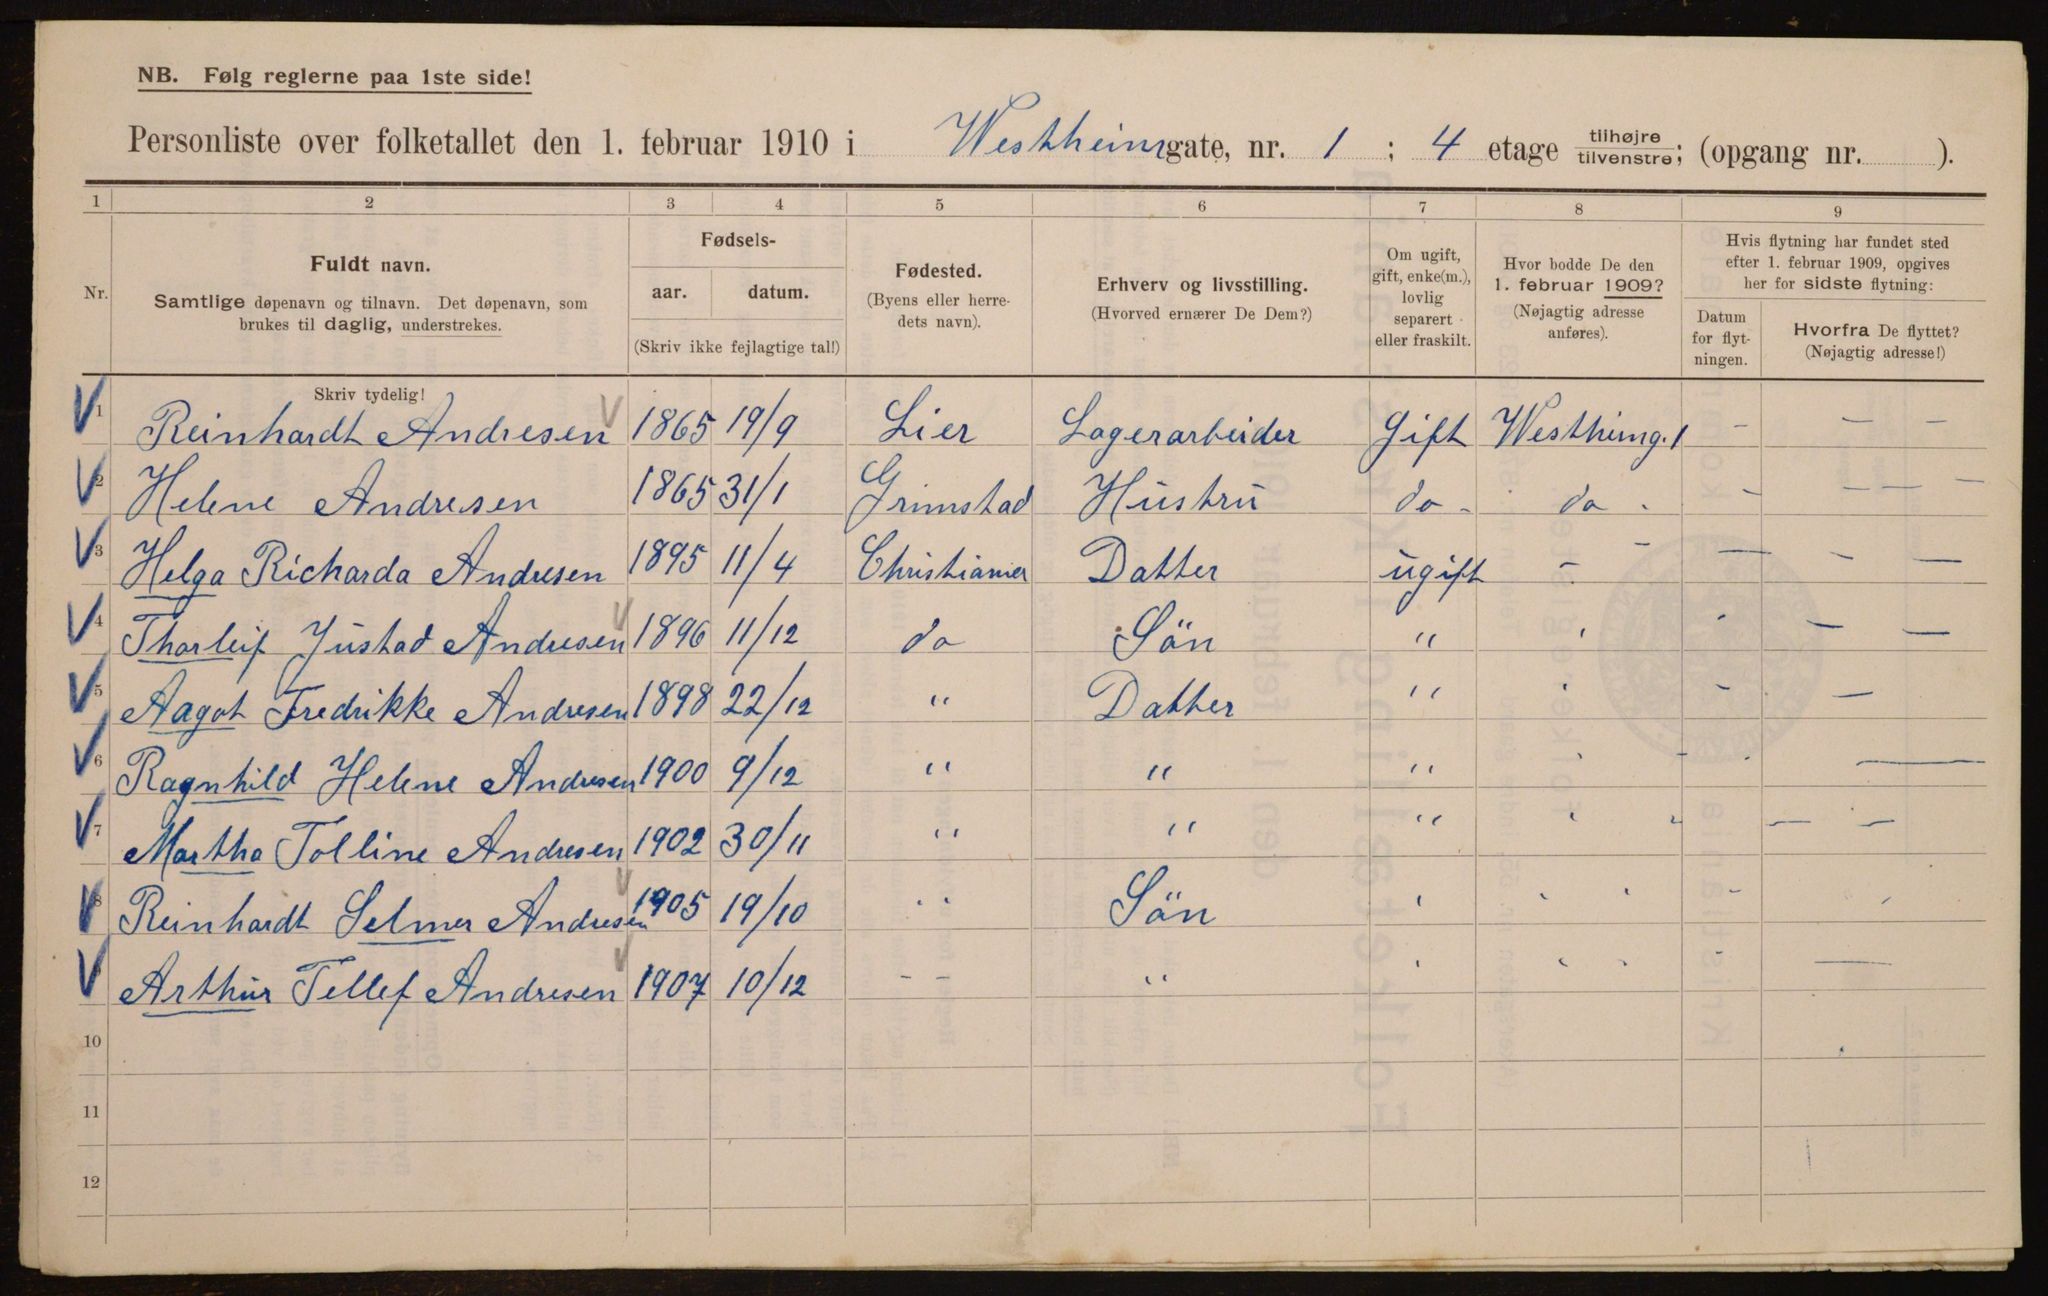 NB. Følg reglerne paa 1ste side!
Personliste over folketallet den 1. februar 1910 i Westheimgate, nr. 1 ; 4 etage tilhøjre tilvenstre; (opgang nr. ).
1 2 3 4 5 6 7 8 9
Nr.
Fuldt navn.
Samtlige døpenavn og tilnavn. Det døpenavn, som
brukes til daglig, understrekes.
Fødsels-
aar. datum.
(Skriv ikke fejlagtige tal!)
Fødested.
(Byens eller herre-
dets navn).
Erhverv og livsstilling.
(Hvorved ernærer De Dem?)
Om ugift,
gift, enke(m.),
lovlig
separert
eller fraskilt.
Hvor bodde De den
1. februar 1909?
(Nøjagtig adresse
anføres).
Hvis flytning har fundet sted
efter 1. februar 1909, opgives
her for sidste flytning:
Datum
for flyt-
ningen.
Hvorfra De flyttet?
(Nøjagtig adresse!)
Skriv tydelig!
1 Reinhardt Andresen 1865 19/9 Lier Lagerarbeider Gift Westheimg. 1 - - -
2 Helene Andresen 1865 31/1 Grimstad Hustru do - do - - - - -
3 Helga Richarda Andresen 1895 11/4 Christiania Datter ugift - - - - -
4 Thorleif Justad Andresen 1896 11/12 do Sön " ' - - -
5 Aagot Fredrikke Andresen 1898 22/12 " Datter " ' - -
6 Ragnhild Helene Andresen 1900 9/12 " " " ' - -
7 Martha Tolline Andresen 1902 30/11 " " " ' - -
8 Reinhardt Selmer Andresen 1905 19/10 " Sön ' ' ' -
9 Arthur Tellef Andresen 1907 10/12 - - " ' ' ' -
10
11
12